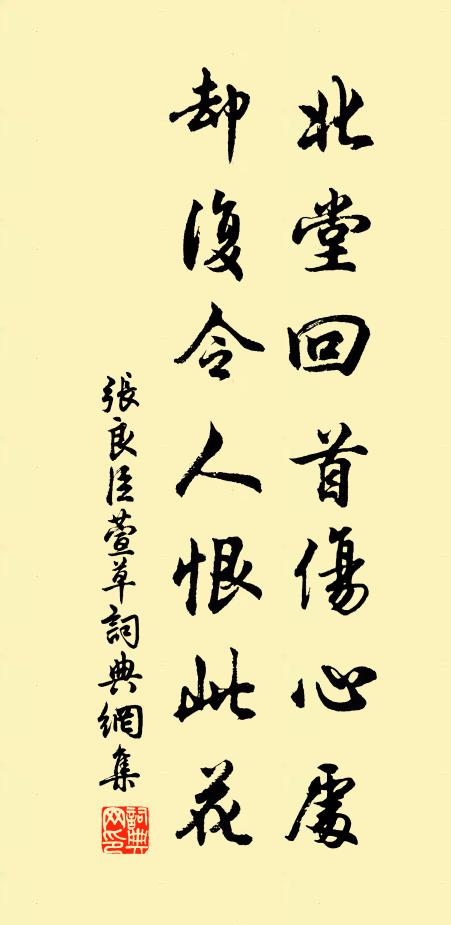 北堂回首傷心處
却復令人恨此花
張良臣萱草詞典網集
詞典网印